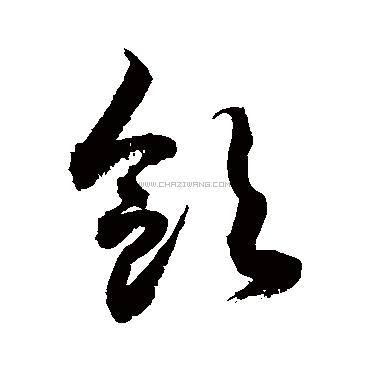 飲
WWW.CHAZIWANG.COM